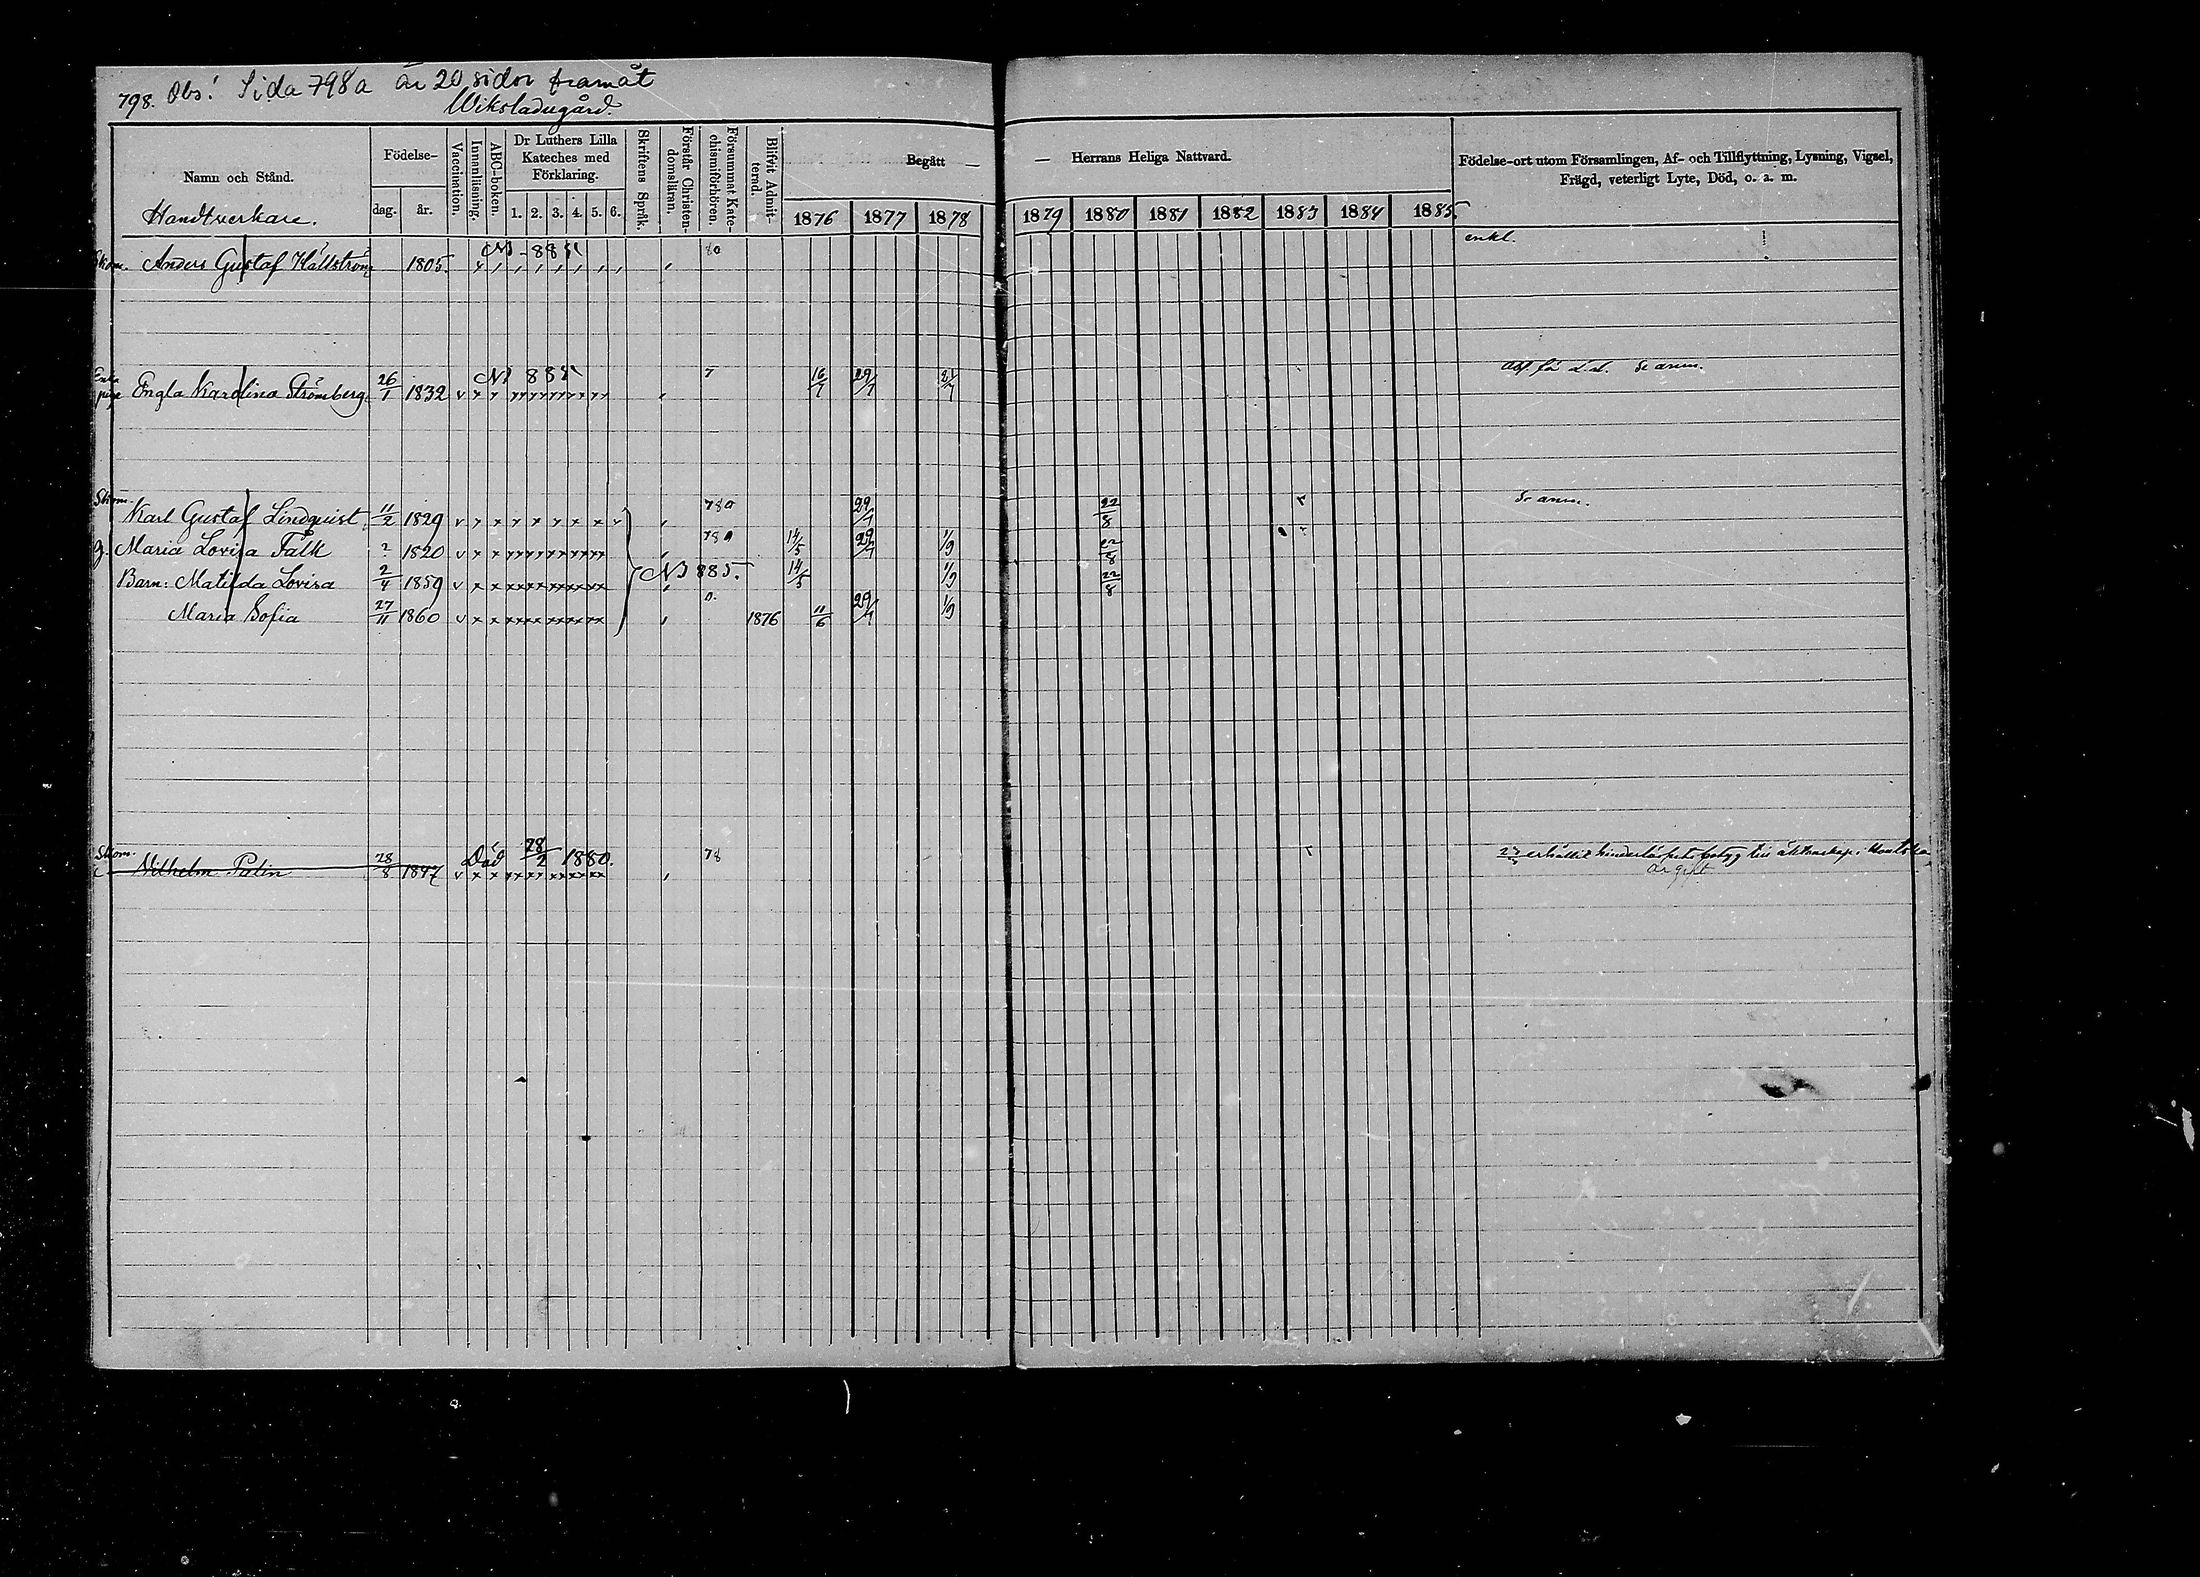 798. Obs! Sida 798a är 20 sidor framåt
Wiksladugård.
Namn och Stånd.
Handtverkare.
Födelse-
dag. år.
Vaccination.
Innanläsning.
ABC-boken.
Dr Luthers Lilla
Kateches med
Förklaring.
1. 2. 3. 4. 5. 6.
Skriftens Språk.
Förstår Christen-
domsläran.
Försummat Kate-
chismiförhören.
Blifvit Admit-
terad.
Begått —
1876 1877 1878
— Herrans Heliga Nattvard.
1879 1880 1881 1882 1883 1884 1885.
Födelse-ort utom Församlingen, Af- och Tillflyttning, Lysning, Vigsel,
Frägd, veterligt Lyte, Död, o. a. m.
Skom. Anders Gustaf Hällström 1805. 80 enkl.
Engla Karolina Strömberg 26/1 1832 7 16/7 29/7 Se anm.
Skom.
Karl Gustaf Lindquist 11/2 1829 780 29/7 22/8 Se anm.
g. Maria Lovisa Fälk 1820 780 14/5 29/7 1/9 22/8
Barn: Matilda Lovisa 2/4 1859 N3 885. 14/5 1/9 22/8
Maria Sofia 27/11 1860 0. 1876 11/6 29/7 1/9
Skom.
Wilhelm Palin 28/8 1847 Död 28/2 1880. 78 erhållit hinderlöshets betyg till äktenskap.
är gift